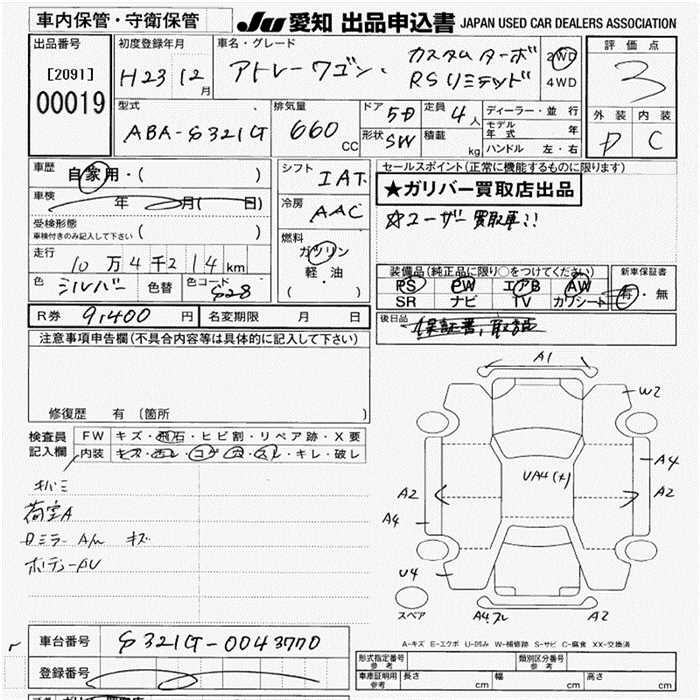 車内保管・守衛保管
JU 愛知 出品申込書 JAPAN USED CAR DEALERS ASSOCIATION
出品番号 初度登録年月 車名・グレード 評価点
[2091] H23 12月 アトレーワゴン カスタムターボ 2WD 3
00019 RSリミテッド 4WD
型式 排気量 ドア 5D 定員 4人 ディーラー・並行 外装 内装
ABA-S321G 660 CC 形状 SW 積載 kg モデル年式 年 D C
ハンドル 左・右
車歴 自家用・( ) シフト IAT セールスポイント(正常に機能するものに限ります)
★ガリバー買取店出品
車検 年 月( 日) 冷房 AAC ☆ユーザー買取車!!
受検形態
車検付きのみ記入して下さい 燃料
走行 10万4千214km ガソリン 装備品(純正品に限り○をつけてください) 新車保証書
軽・油 PS PW エアB AW 有・無
色 シルバー 色替 色コード S28 ( ・ ) SR ナビ TV カワシート
R券 9,400円 名変期限 月 日 後日品 保証書、取説
注意事項申告欄(不具合内容等は具体的に記入して下さい)
修復歴 有(箇所
検査員 FW キズ・飛石・ヒビ割・リペア跡・X要
記入欄 内装 キズ・ヨゴレ・コゲ・穴・スレ・キレ・破レ
荷室A
ロミラー A/m キズ
A1
W2
A4
A2
UA4(+)
A2
A4
U4
スペア
A4スレ
A2
A-キズ E-エクボ U-凹み W-補修跡 S-サビ C-腐食 XX-交換済
車台番号 S321G-0043770
登録番号
形式指定番号 参考 類別区分番号 参考
車庫証明用 参考 長さ cm 幅 cm 高さ cm